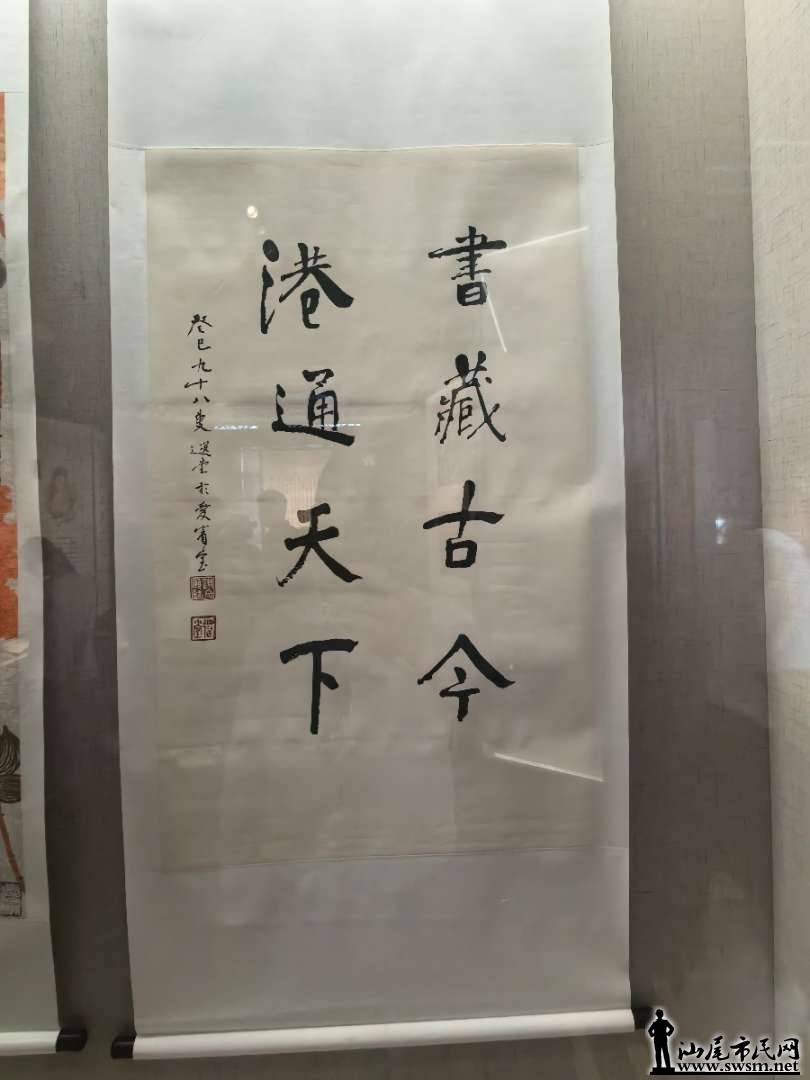 書藏古今
港通天下
癸巳九十八叟選堂於愛賓室
汕尾市民网
www.swsm.net